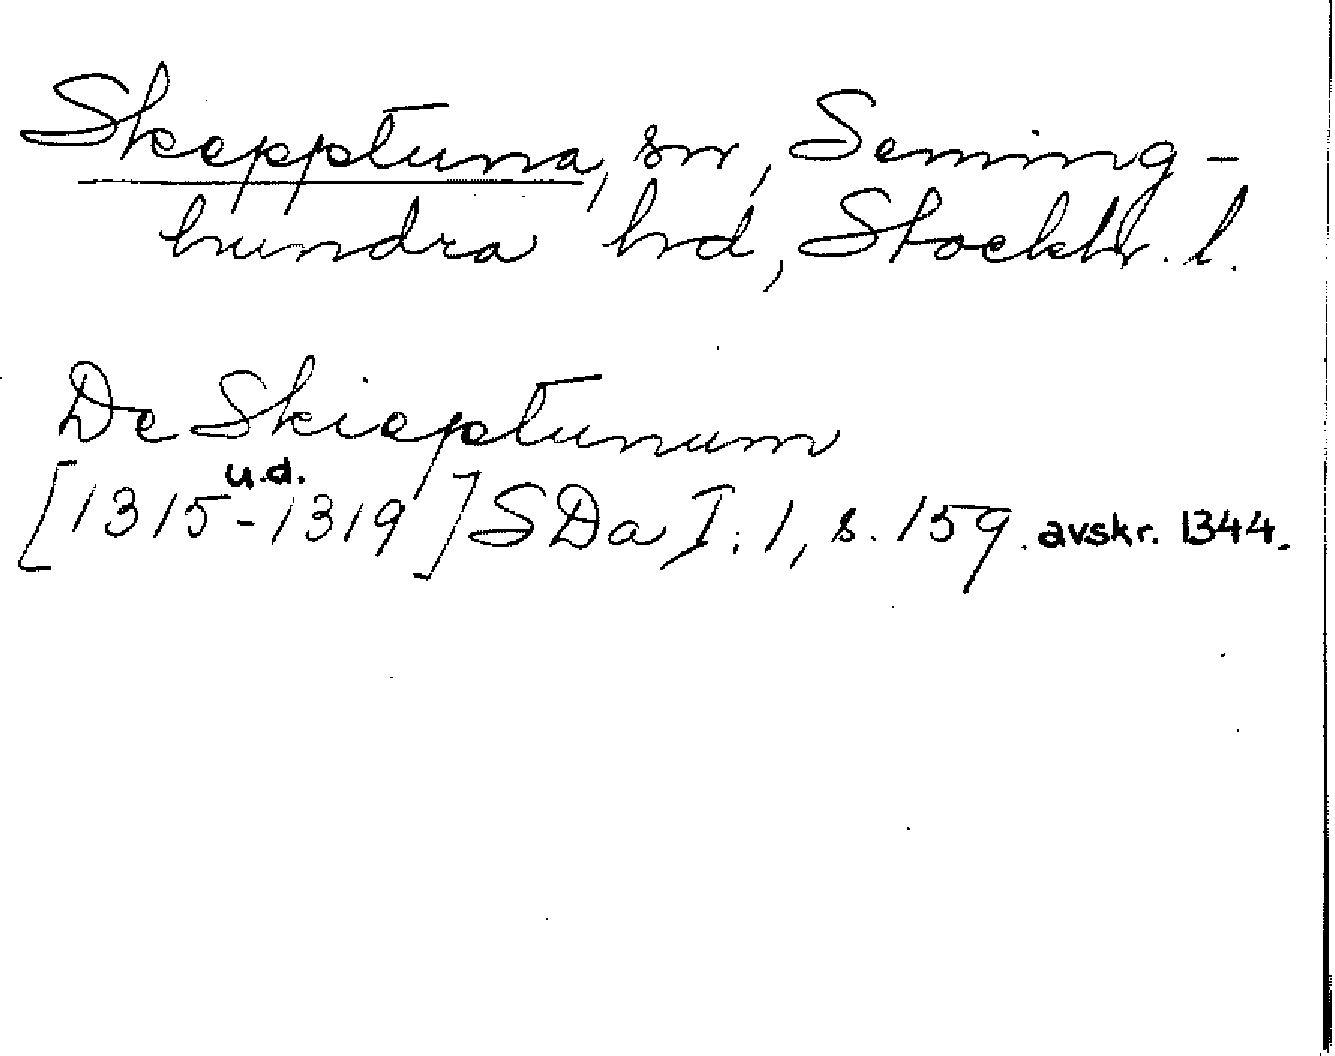 Skepptuna, sn, Seming-
hundra hd, Stockh. l.
De Skieptunum
u.d.
[1315-1319] SDa I:1, s. 159. avskr. 1344.